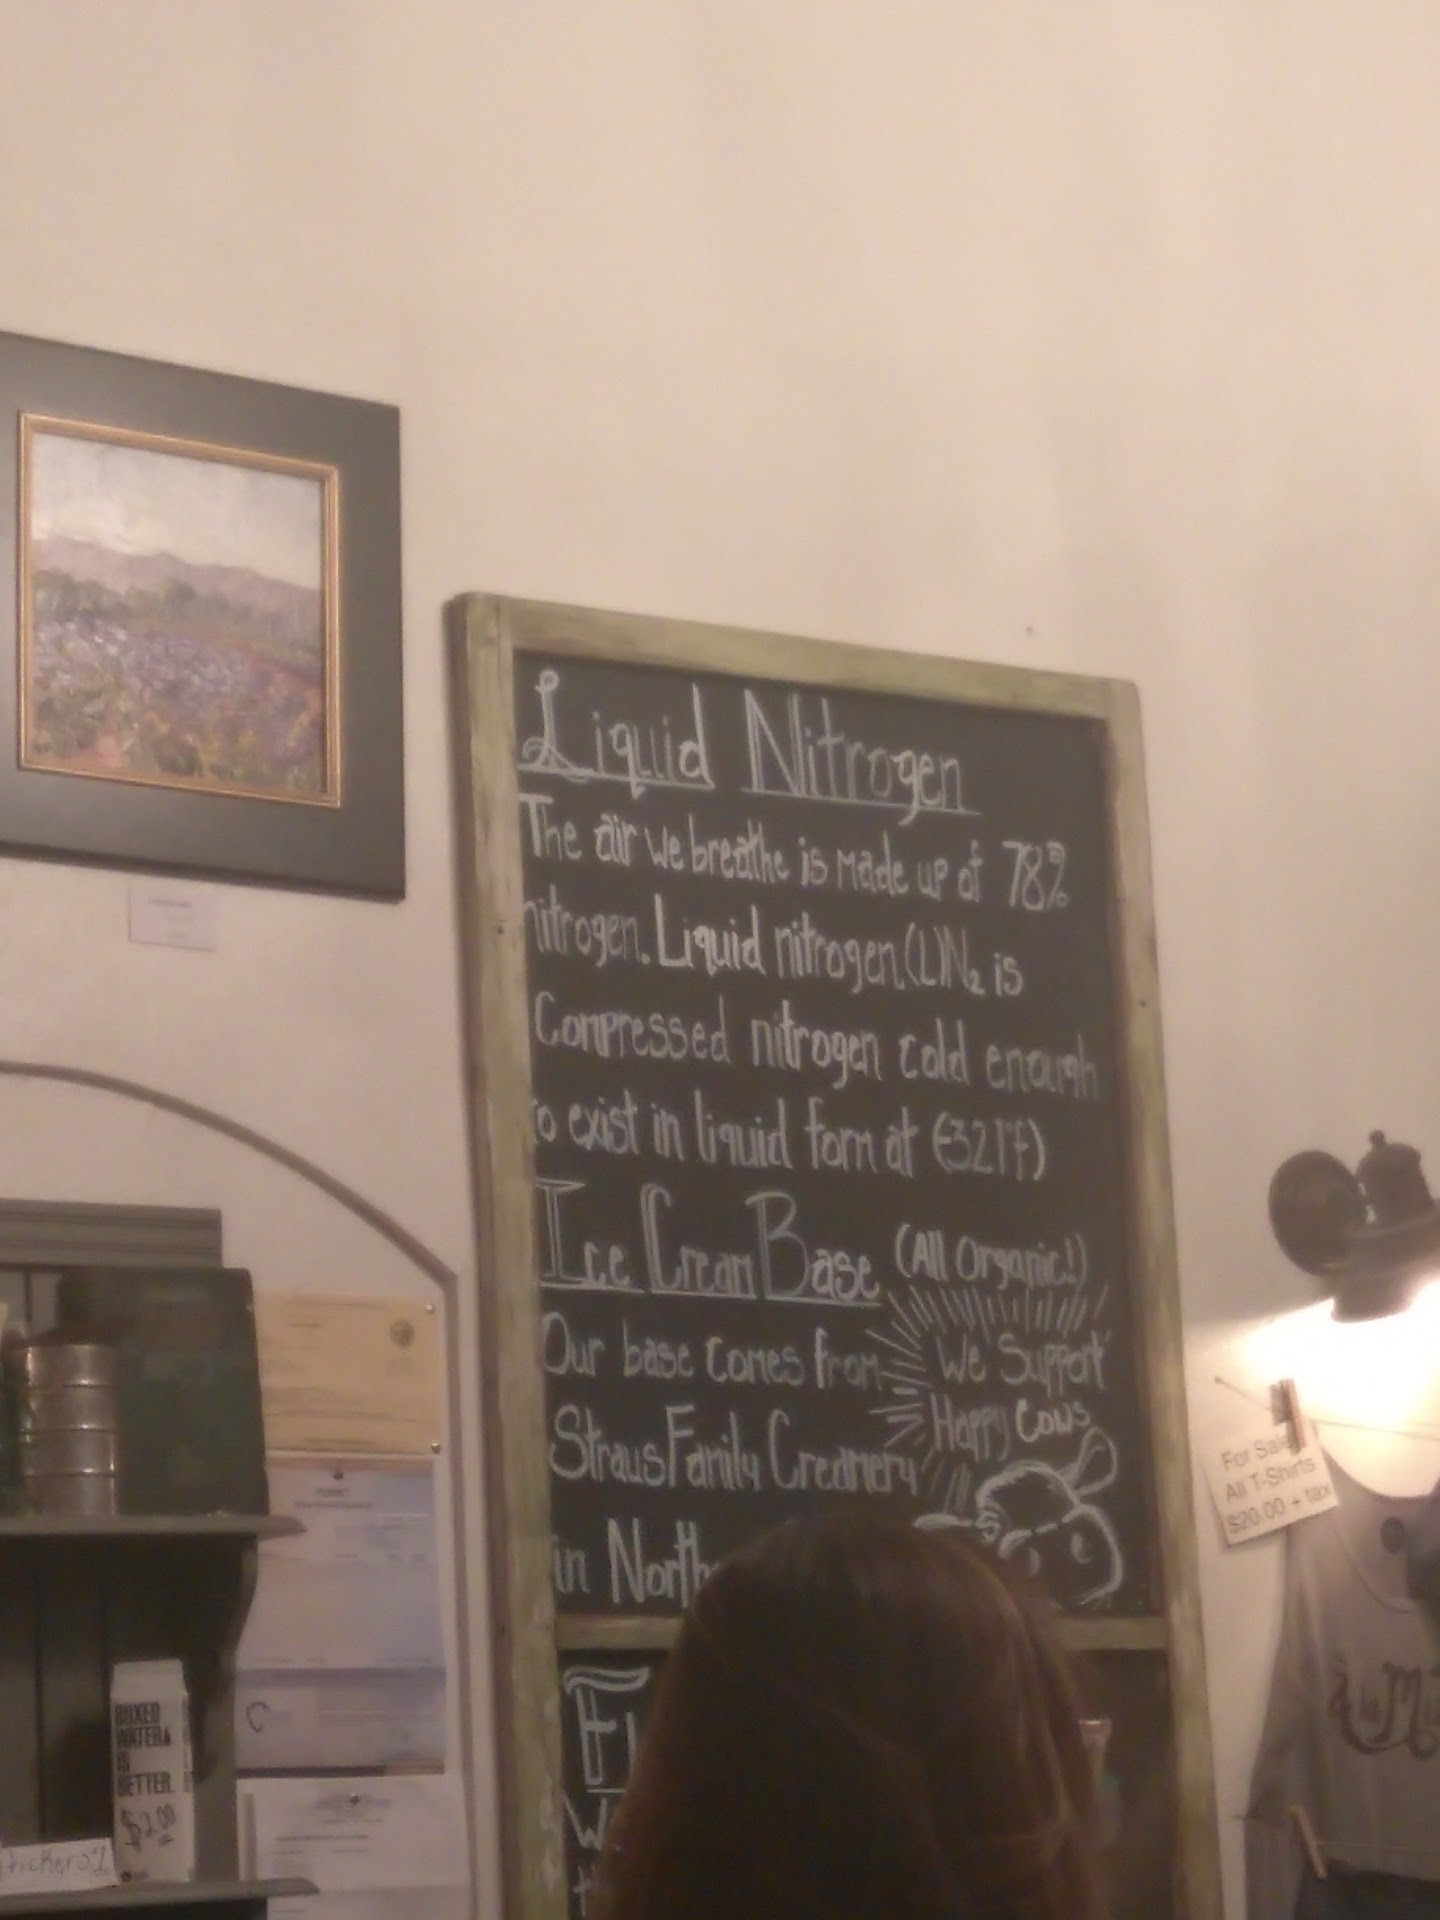 Liquid Nitrogen
The air we breathe is made up of 78%
nitrogen. Liquid nitrogen, (L)N₂ is
Compressed nitrogen cold enough
to exist in liquid form at (-321°f)
Ice Cream Base (All Organic!)
Our base comes from
Straus Family Creamery
in North
We Support
Happy Cows
For Sale
All T-Shirts
$20.00 + tax
BOXED
WATER
IS
BETTER.
$2.00